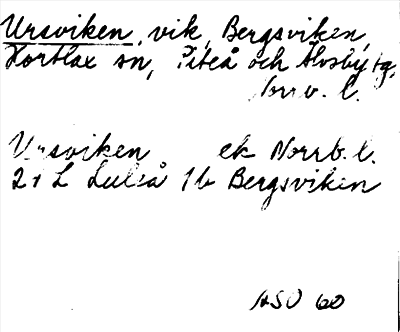 Ursviken, vik, Bergsviken,
Hortlax sn, Piteå och Älvsby tg,
Norrb. l.
Ursviken ek Norrb. l.
21 L Luleå 1b Bergsviken
ASO 60